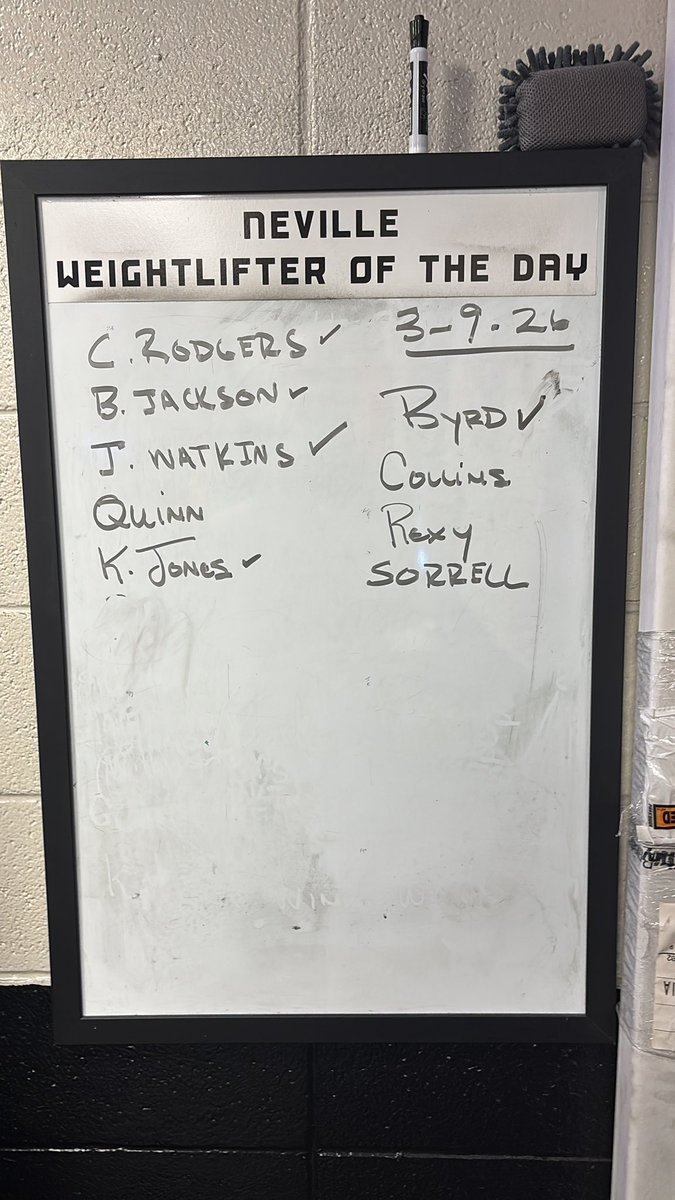 NEVILLE
WEIGHTLIFTER OF THE DAY
3-9-26
C. RODGERS ✓
B. JACKSON ✓
J. WATKINS ✓
QUINN
K. JONES ✓
BYRD ✓
COLLINS
REXY
SORRELL